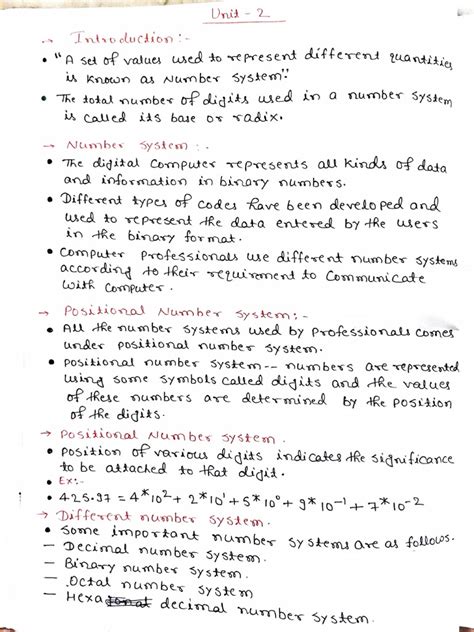 Unit - 2
→ Introduction :-
• "A set of values used to represent different quantities
is known as Number System".
• The total number of digits used in a number system
is called its base or radix.
→ Number System :-
• The digital computer represents all kinds of data
and information in binary numbers.
• Different types of codes have been developed and
used to represent the data entered by the users
in the binary format.
• Computer Professionals use different number systems
according to their requirement to communicate
with computer.
→ Positional Number System :-
• All the number systems used by professionals comes
under positional number system.
• Positional number system -- numbers are represented
using some symbols called digits and the values
of these numbers are determined by the position
of the digits.
→ Positional Number System.
• Position of various digits indicates the significance
to be attached to that digit.
• Ex:-
• 425.97 = 4*10² + 2*10¹ + 5*10⁰ + 9*10⁻¹ + 7*10⁻²
→ Different number system.
• Some important number systems are as follows.
— Decimal number system.
— Binary number system.
— Octal number system
— Hexa decimal number system.